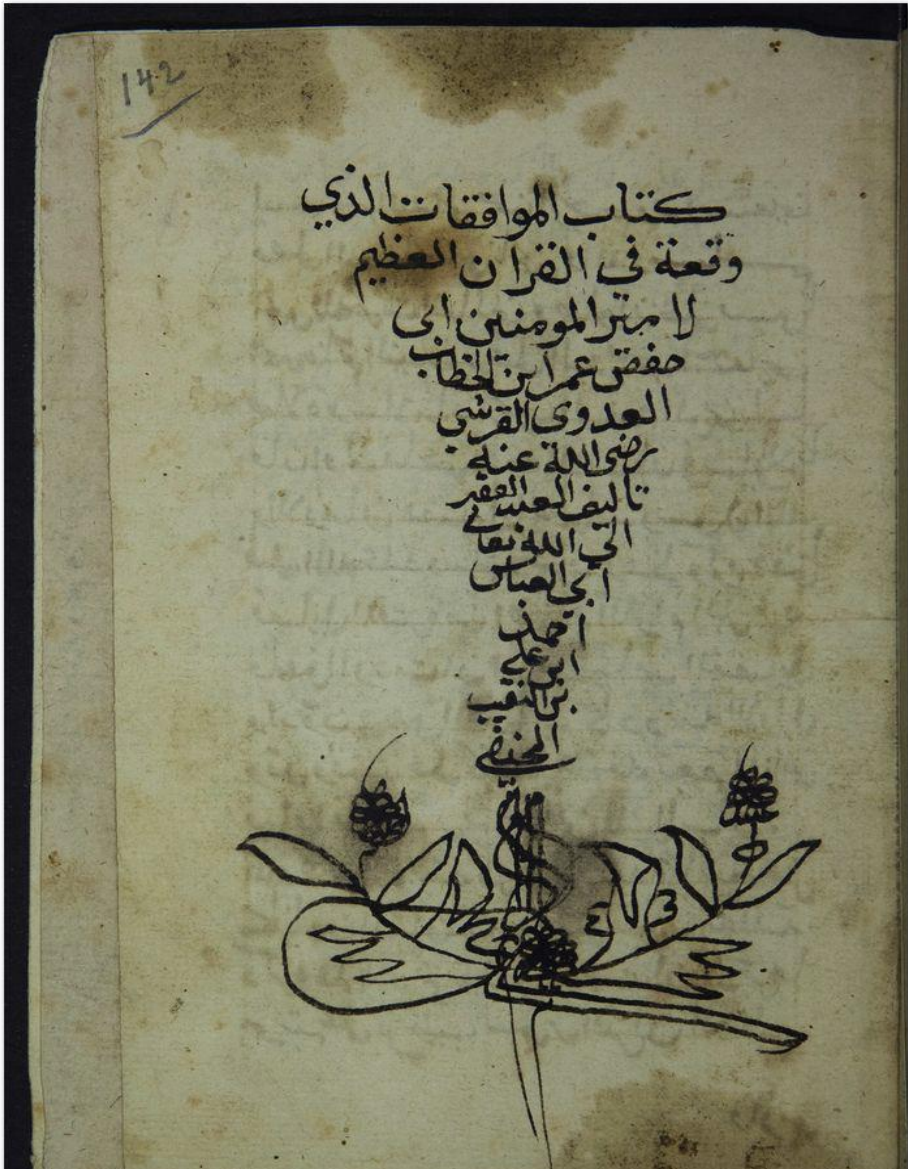 142
كتاب الموافقات الذي
وقعة في القران العظيم
لامير المومنين ابى
حفص عمر ابن الخطاب
العدوى القرشي
رضى الله عنه
تاليف العبد الفقير
الي الله تعالى
ابي العباس
احمد
ابن علي
بن النقيب
الحنفي